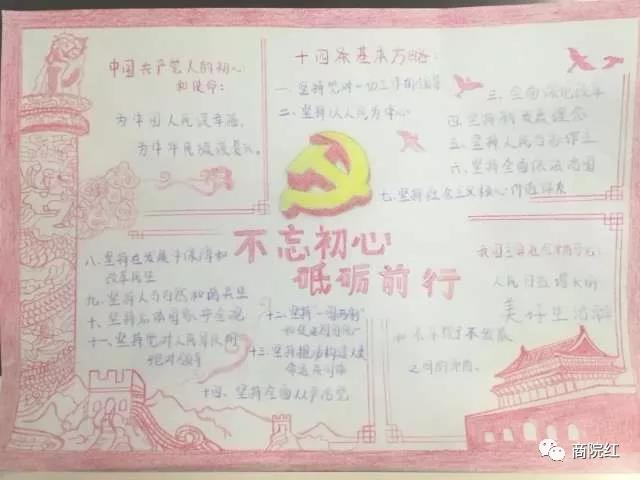 中国共产党人的初心
和使命：
为中国人民谋幸福，
为中华民族谋复兴。
十四条基本方略：
一、坚持党对一切工作的领导
二、坚持以人民为中心
三、全面深化改革
四、坚持新发展理念
五、坚持人民当家作主
六、坚持全面依法治国
七、坚持社会主义核心价值体系
不忘初心
砥砺前行
八、坚持在发展中保障和
改善民生
九、坚持人与自然和谐共生
十、坚持总体国家安全观
十一、坚持党对人民军队的
绝对领导
十二、坚持"一国两制"
和
十三、坚持推动构建人类
命运共同体
十四、坚持全面从严治党
我国主要社会矛盾
人民日益增长的
美好生活
和不平衡不充分发展
之间的矛盾。
商院红